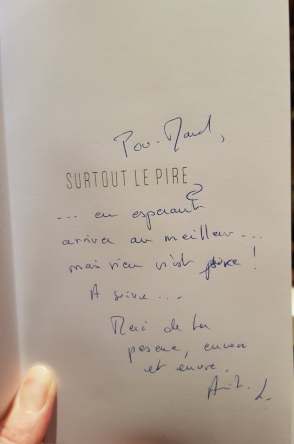 Pour Maud,
SURTOUT LE PIRE
?
... en espérant
arriver au meilleur...
mais rien n'est !
A suivre...
Merci de ta
présence, encore
et encore.